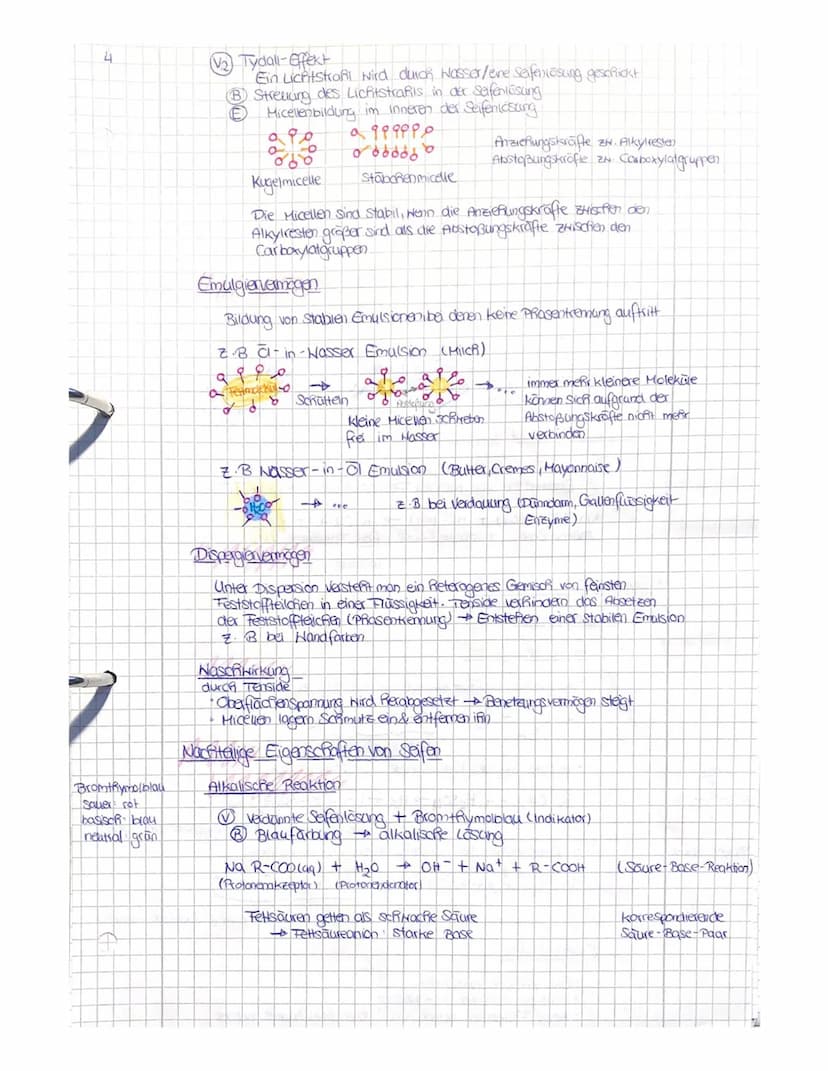 4
V2 Tydall-Effekt
Ein Lichtstrahl wird durch Wasser/eine Seifenlösung geschickt
B Streuung des Lichtstrahls in der Seifenlösung
E Micellenbildung im Inneren der Seifenlösung
Anziehungskräfte zw. Alkylresten
Abstoßungskräfte zw. Carboxylatgruppen
Kugelmicelle Stäbchenmicelle
Die Micellen sind stabil, wenn die Anziehungskräfte zwischen den
Alkylresten größer sind als die Abstoßungskräfte zwischen den
Carboxylatgruppen
Emulgiervermögen
Bildung von stabilen Emulsionen, bei denen keine Phasentrennung auftritt
z.B Öl-in-Wasser Emulsion (Milch)
Schütteln
Abstoßung
kleine Micellen schweben
frei im Wasser
→ ... immer mehr kleinere Moleküle
können sich aufgrund der
Abstoßungskräfte nicht mehr
verbinden
z.B Wasser-in-Öl Emulsion (Butter, Cremes, Mayonnaise)
H2O → ... z.B. bei Verdauung (Dünndarm, Gallenflüssigkeit
Enzyme)
Dispergiervermögen
Unter Dispersion versteht man ein heterogenes Gemisch von feinsten
Feststoffteilchen in einer Flüssigkeit. Tenside verhindern das Absetzen
der Feststoffteilchen (Phasentrennung) → Entstehen einer stabilen Emulsion
z. B bei Wandfarben
Waschwirkung
durch Tenside
· Oberflächenspannung wird herabgesetzt → Benetzungsvermögen steigt
· Micellen lagern Schmutz ein & entfernen ihn
Nachteilige Eigenschaften von Seifen
Alkalische Reaktion
Bromthymolblau
sauer: rot
basisch: blau
neutral: grün
V verdünnte Seifenlösung + Bromthymolblau (Indikator)
B Blaufärbung → alkalische Lösung
Na R-COO(aq) + H2O → OH⁻ + Na⁺ + R-COOH (Säure-Base-Reaktion)
(Protonenakzeptor) (Protonendonator)
Fettsäuren gelten als schwache Säure
→ Fettsäureanion: starke Base
korrespondierende
Säure-Base-Paar